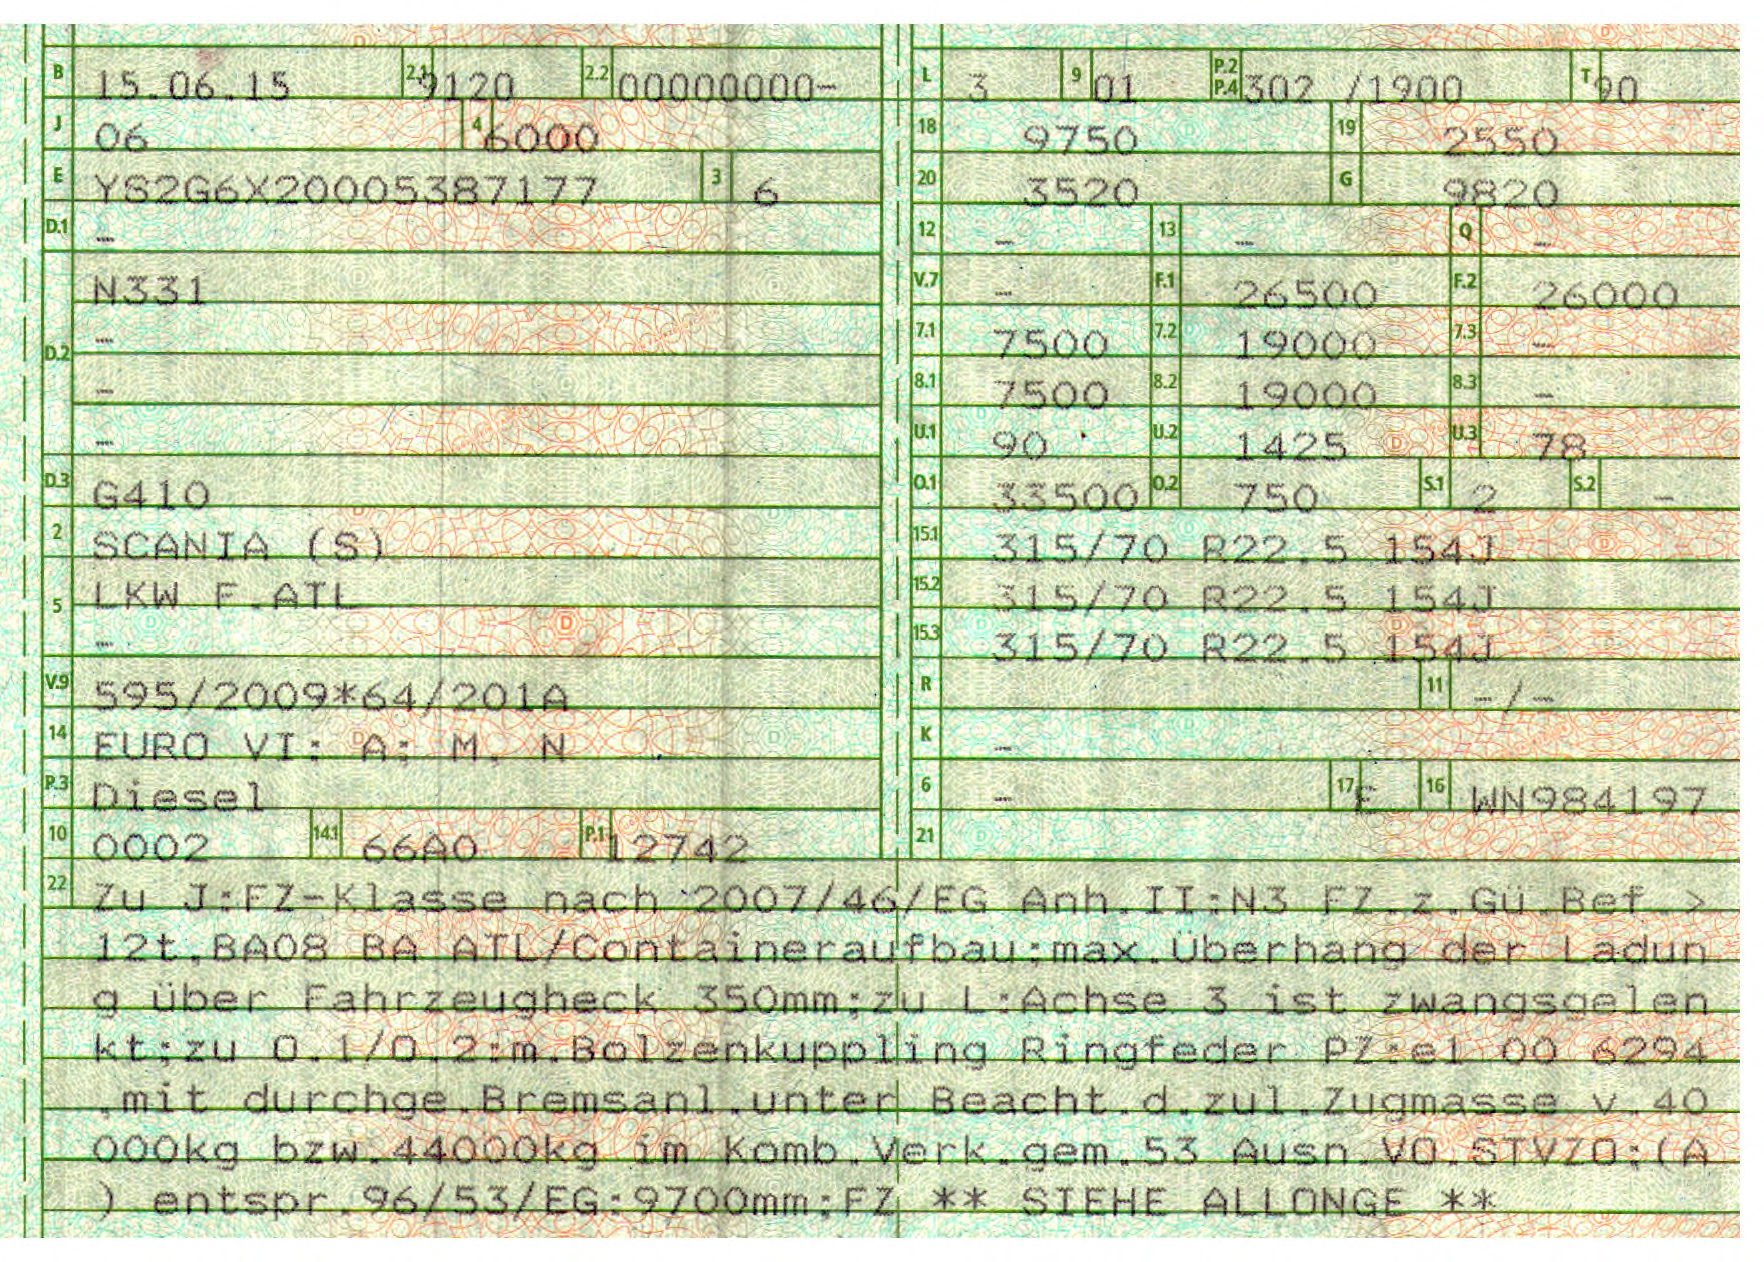 B 15.06.15 2.1 9120 2.2 00000000-
J 06 4 6000
E YS2G6X20005387177 3 6
D.1 -
N331
-
D.2
-
-
D.3 G410
2 SCANIA (S)
LKW F.ATL
5 -
V.9 595/2009*64/201A
14 EURO VI; A; M, N
P.3 Diesel
10 0002 14.1 66A0 P.1 12742
L 3 9 01 P.2 P.4 302 /1900 T 90
18 9750 19 2550
20 3520 G 9820
12 - 13 - Q -
V.7 - F.1 26500 F.2 26000
7.1 7500 7.2 19000 7.3 -
8.1 7500 8.2 19000 8.3 -
U.1 90 U.2 1425 U.3 78
O.1 33500 O.2 750 S.1 2 S.2 -
15.1 315/70 R22.5 154J
15.2 315/70 R22.5 154J
15.3 315/70 R22.5 154J
R 11 -/-
K -
6 - 17 E 16 WN984197
21
22 Zu J:FZ-Klasse nach 2007/46/EG Anh.II:N3 FZ.z.Gü.Bef.>
12t.BA08 BA ATL/Containeraufbau;max.Überhang der Ladun
g über Fahrzeugheck 350mm;zu L:Achse 3 ist zwangsgelen
kt;zu O.1/O.2:m.Bolzenkuppling Ringfeder PZ:e1 00 6294
,mit durchge.Bremsanl.unter Beacht.d.zul.Zugmasse v.40
000kg bzw.44000kg im Komb.Verk.gem.53 Ausn.VO.STVZO;(A
) entspr.96/53/EG:9700mm;FZ ** SIEHE ALLONGE **